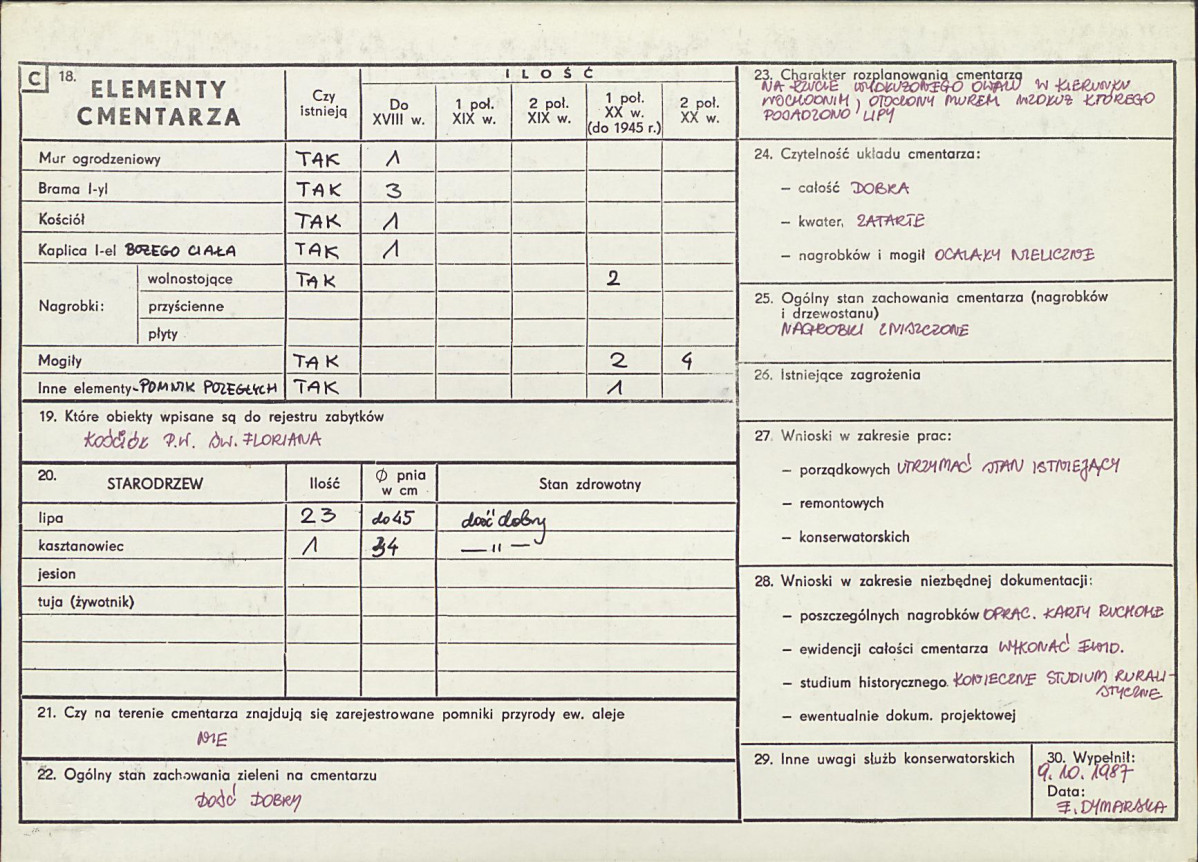 C 18. ELEMENTY CMENTARZA
Czy istnieją
ILOŚĆ
Do XVIII w.
1 poł. XIX w.
2 poł. XIX w.
1 poł. XX w. (do 1945 r.)
2 poł. XX w.
Mur ogrodzeniowy TAK 1
Brama I-yl TAK 3
Kościół TAK 1
Kaplica I-el BOŻEGO CIAŁA TAK 1
Nagrobki: wolnostojące TAK 2
przyścienne
płyty
Mogiły TAK 2 4
Inne elementy-POMNIK POLEGŁYCH TAK 1
19. Które obiekty wpisane są do rejestru zabytków
KOŚCIÓŁ P.W. ŚW. FLORIANA
20. STARODRZEW Ilość Ø pnia w cm Stan zdrowotny
lipa 23 do 45 dość dobry
kasztanowiec 1 34 — " —
jesion
tuja (żywotnik)
21. Czy na terenie cmentarza znajdują się zarejestrowane pomniki przyrody ew. aleje
NIE
22. Ogólny stan zachowania zieleni na cmentarzu
DOŚĆ DOBRY
23. Charakter rozplanowania cmentarza
NA RZUCIE WYDŁUŻONEGO OWALU W KIERUNKU
WSCHODNIM, OTOCZONY MUREM WZDŁUŻ KTÓREGO
POSADZONO LIPY
24. Czytelność układu cmentarza:
– całość DOBRA
– kwater, ZATARTE
– nagrobków i mogił OCALAŁY NIELICZNE
25. Ogólny stan zachowania cmentarza (nagrobków
i drzewostanu)
NAGROBKI ZNISZCZONE
26. Istniejące zagrożenia
27. Wnioski w zakresie prac:
– porządkowych UTRZYMAĆ STAN ISTNIEJĄCY
– remontowych
– konserwatorskich
28. Wnioski w zakresie niezbędnej dokumentacji:
– poszczególnych nagrobków OPRAC. KARTY RUCHOME
– ewidencji całości cmentarza WYKONAĆ EWID.
– studium historycznego KONIECZNE STUDIUM RURALI-
STYCZNE
– ewentualnie dokum. projektowej
29. Inne uwagi służb konserwatorskich
30. Wypełnił:
9.10.1987
Data:
E. DYMARSKA